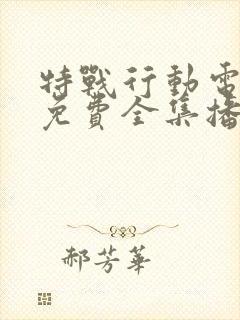 特戰行動電
免費全集播
郝芳華